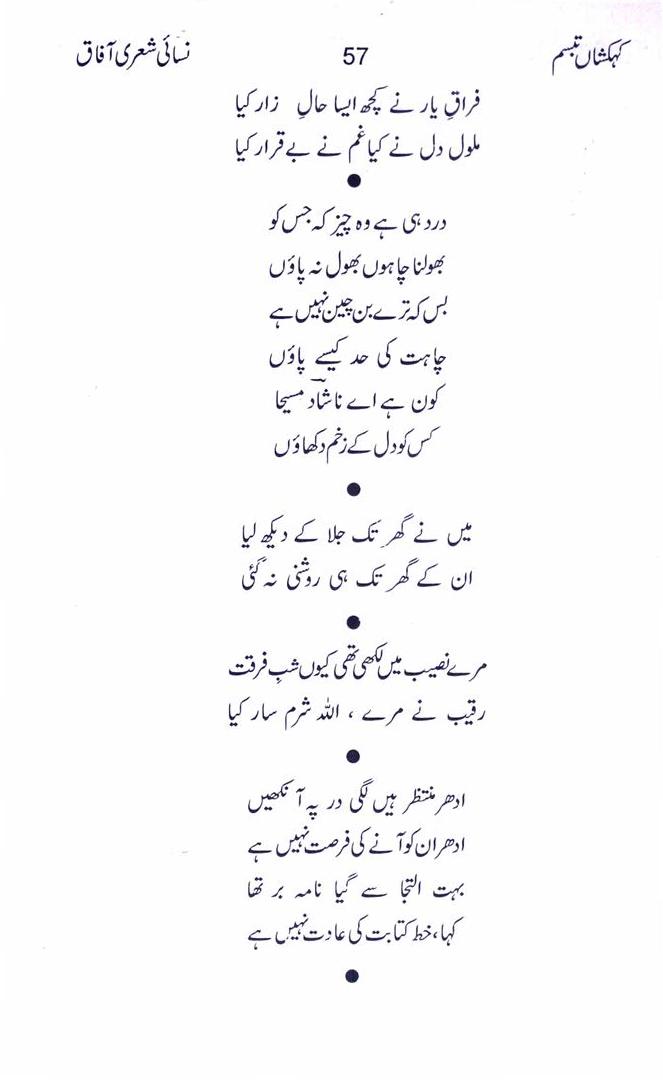 کہکشاں تبسم 57 نسائی شعری آفاق
فراقِ یار نے کچھ ایسا حالِ زار کیا
ملول دل نے کیا غم نے بے قرار کیا
●
درد ہی ہے وہ چیز کہ جس کو
بھولنا چاہوں بھول نہ پاؤں
بس کہ ترے بن چین نہیں ہے
چاہت کی حد کیسے پاؤں
کون ہے اے ناشاؔد مسیحا
کس کو دل کے زخم دکھاؤں
●
میں نے گھر تک جلا کے دیکھ لیا
ان کے گھر تک ہی روشنی نہ گئی
●
مرے نصیب میں لکھی تھی کیوں شبِ فرقت
رقیب نے مرے ، اللہ شرم سار کیا
●
ادھر منتظر ہیں لگی در پہ آنکھیں
ادھر ان کو آنے کی فرصت نہیں ہے
بہت التجا سے گیا نامہ بر تھا
کہا، خط کتابت کی عادت نہیں ہے
●